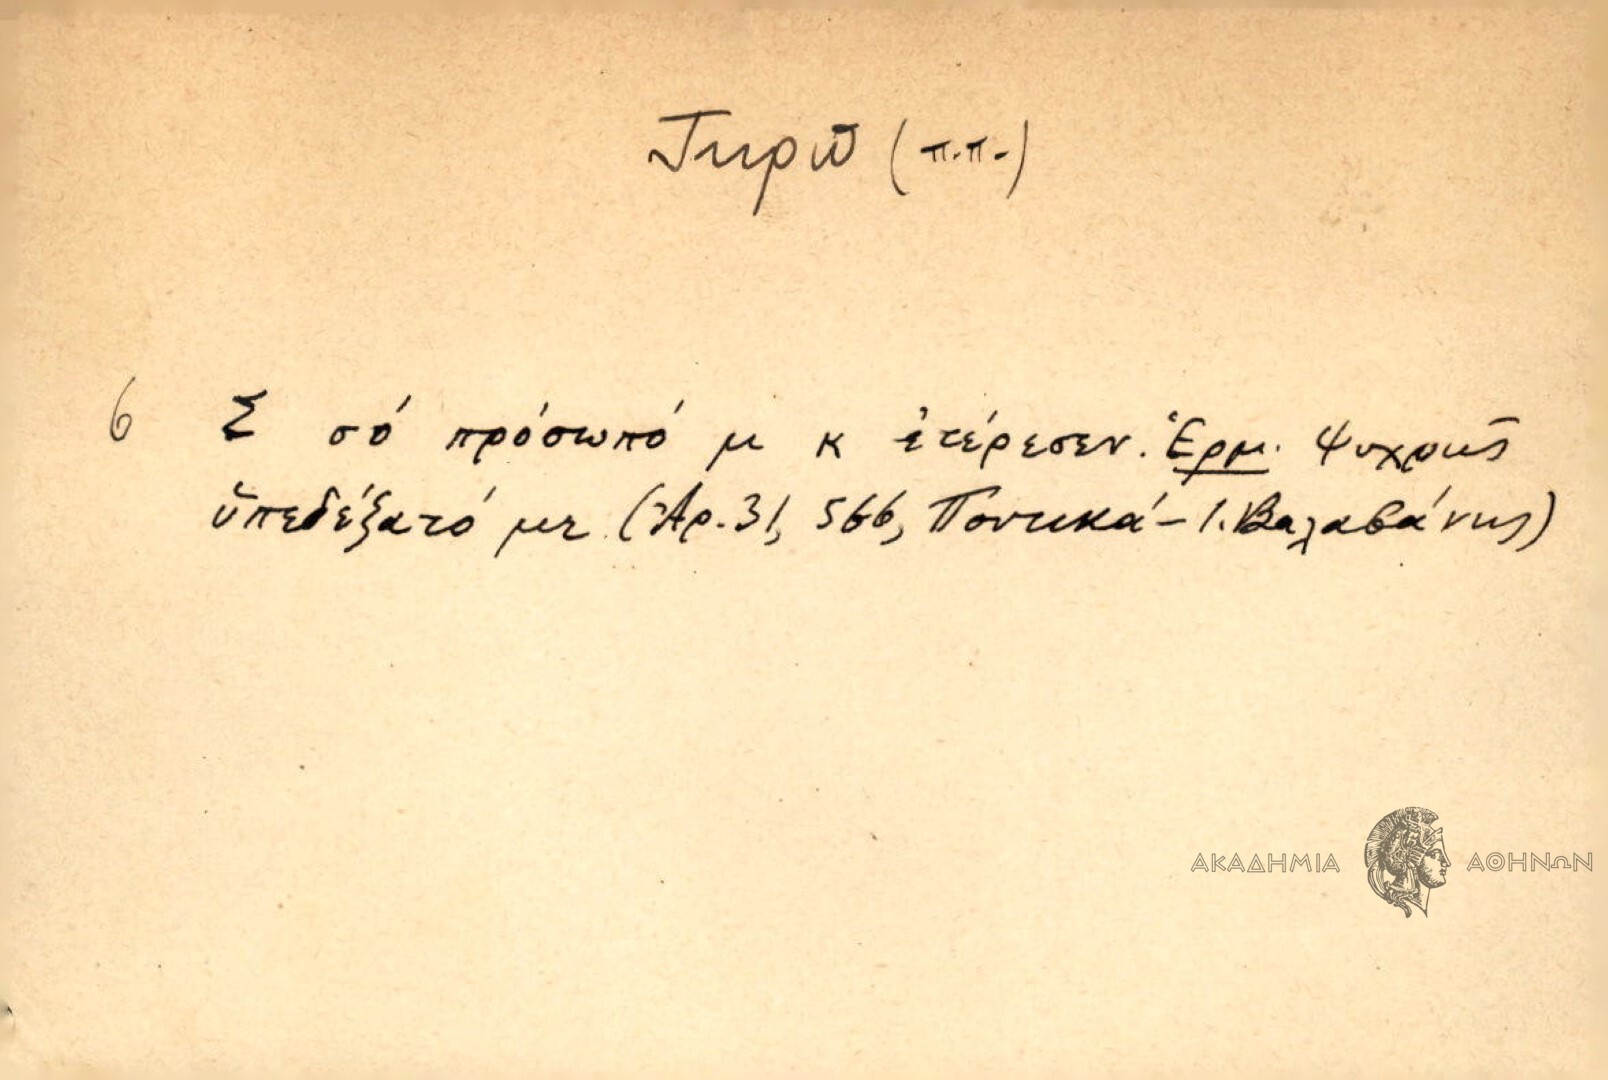 Τηρῶ (π.π.)
6 Σ σό πρόσωπό μ κ ἐτέρεσεν. Ἑρμ. Ψυχρῶς
ὑπεδέξατό με (Ἀρ. 31, 566, Ποντικά - Ι. Βαλαβάνης)
ΑΚΑΔΗΜΙΑ ΑΘΗΝΩΝ